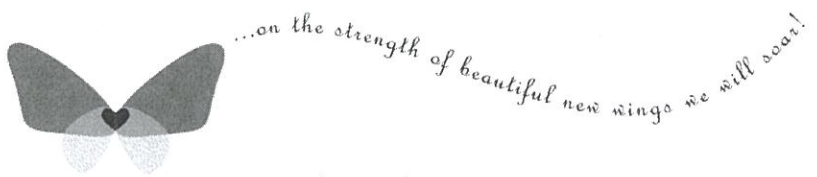 ...on the strength of beautiful new wings we will soar!